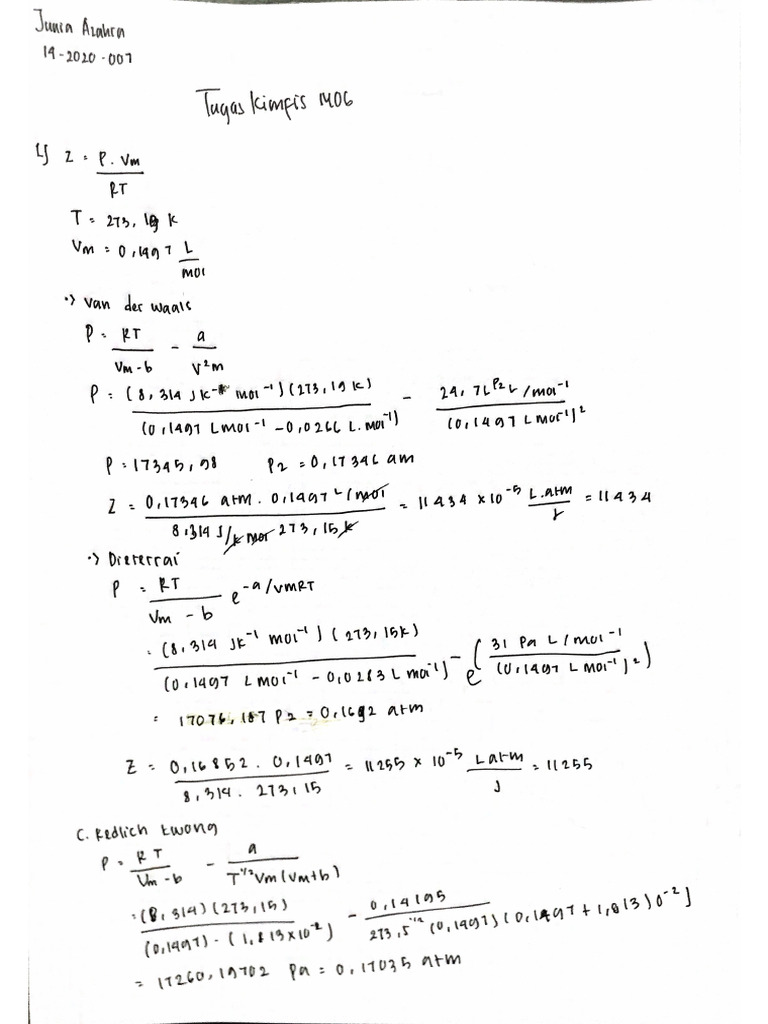 Junia Azahra
14-2020-007
Tugas Kimfis M06
1) Z = P . Vm / RT
T = 273,15 K
Vm = 0,1497 L/mol
•) Van der waals
P = RT / Vm-b - a / V²m
P = (8,314 JK-1 mol-1) (273,15 K) / (0,1497 L mol-1 - 0,0266 L. mol-1) - 24,7 L Pa L/mol-1 / (0,1497 L mol-1)2
P = 17345,98 Pa = 0,17346 am
Z = 0,17346 atm . 0,1497 L/mol / 8,314 J/K mol 273,15 K = 11434 x 10-5 L.atm/J = 11434
•) Dieterrai
P = RT / Vm - b e-a/VMRT
= (8,314 JK-1 mol-1) (273,15K) / (0,1497 L mol-1 - 0,0283 L mol-1) - e (31 Pa L/mol-1 / (0,1497 L mol-1)2)
= 17076,187 Pa = 0,1692 atm
Z = 0,16852 . 0,1497 / 8,314 . 273,15 = 11255 x 10-5 L atm / J = 11255
C. Redlich kwong
P = RT / Vm-b - a / T1/2 Vm (Vm+b)
= (8,314) (273,15) / (0,1497) - (1,813x10-2) - 0,14195 / 273,5 1/2 (0,1497) (0,1497 + 1,813) 0-2]
= 17260,19702 Pa = 0,17035 atm